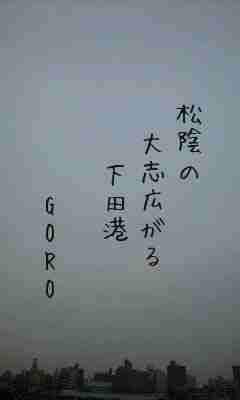 松陰の
大志広がる
下田港
GORO